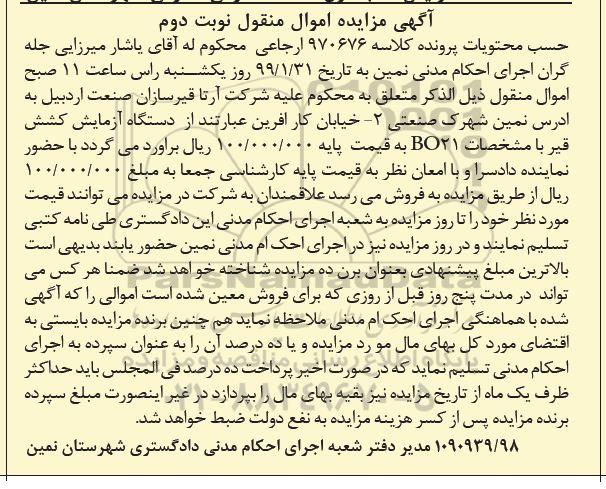 آگهی مزایده اموال منقول نوبت دوم
حسب محتویات پرونده کلاسه ۹۷۰۶۷۶ ارجاعی محکوم له آقای یاشار میرزایی جله
گران اجرای احکام مدنی نمین به تاریخ ۹۹/۱/۳۱ روز یکشـنبه راس ساعت ۱۱ صبح
اموال منقول ذیل الذکر متعلق به محکوم علیه شرکت آرتا قیرسازان صنعت اردبیل به
ادرس نمین شهرک صنعتی ۲- خیابان کار افرین عبارتند از دستگاه آزمایش کشش
قیر با مشخصات BO۲۱ به قیمت پایه ۱۰۰/۰۰۰/۰۰۰ ریال براورد می گردد با حضور
نماینده دادسرا و با امعان نظر به قیمت پایه کارشناسی جمعا به مبلغ ۱۰۰/۰۰۰/۰۰۰
ریال از طریق مزایده به فروش می رسد علاقمندان به شرکت در مزایده می توانند قیمت
مورد نظر خود را تا روز مزایده به شعبه اجرای احکام مدنی این دادگستری طی نامه کتبی
تسلیم نمایند و در روز مزایده نیز در اجرای احک ام مدنی نمین حضور یابند بدیهی است
بالاترین مبلغ پیشنهادی بعنوان برن ده مزایده شناخته خو اهد شد ضمنا هر کس می
تواند در مدت پنج روز قبل از روزی که برای فروش معین شده است اموالی را که آگهی
شده با هماهنگی اجرای احک ام مدنی ملاحظه نماید هم چنین برنده مزایده بایستی به
اقتضای مورد کل بهای مال مو رد مزایده و یا ده درصد آن را به عنوان سپرده به اجرای
احکام مدنی تسلیم نماید که در صورت اخیر پرداخت ده درصد فی المجلس باید حداکثر
ظرف یک ماه از تاریخ مزایده نیز بقیه بهای مال را بپردازد در غیر اینصورت مبلغ سپرده
برنده مزایده پس از کسر هزینه مزایده به نفع دولت ضبط خواهد شد.
۱۰۹۰۹۳۹/۹۸ مدیر دفتر شعبه اجرای احکام مدنی دادگستری شهرستان نمین
ParsNamadData
پایگاه اطلاع رسانی مناقصه و مزایده